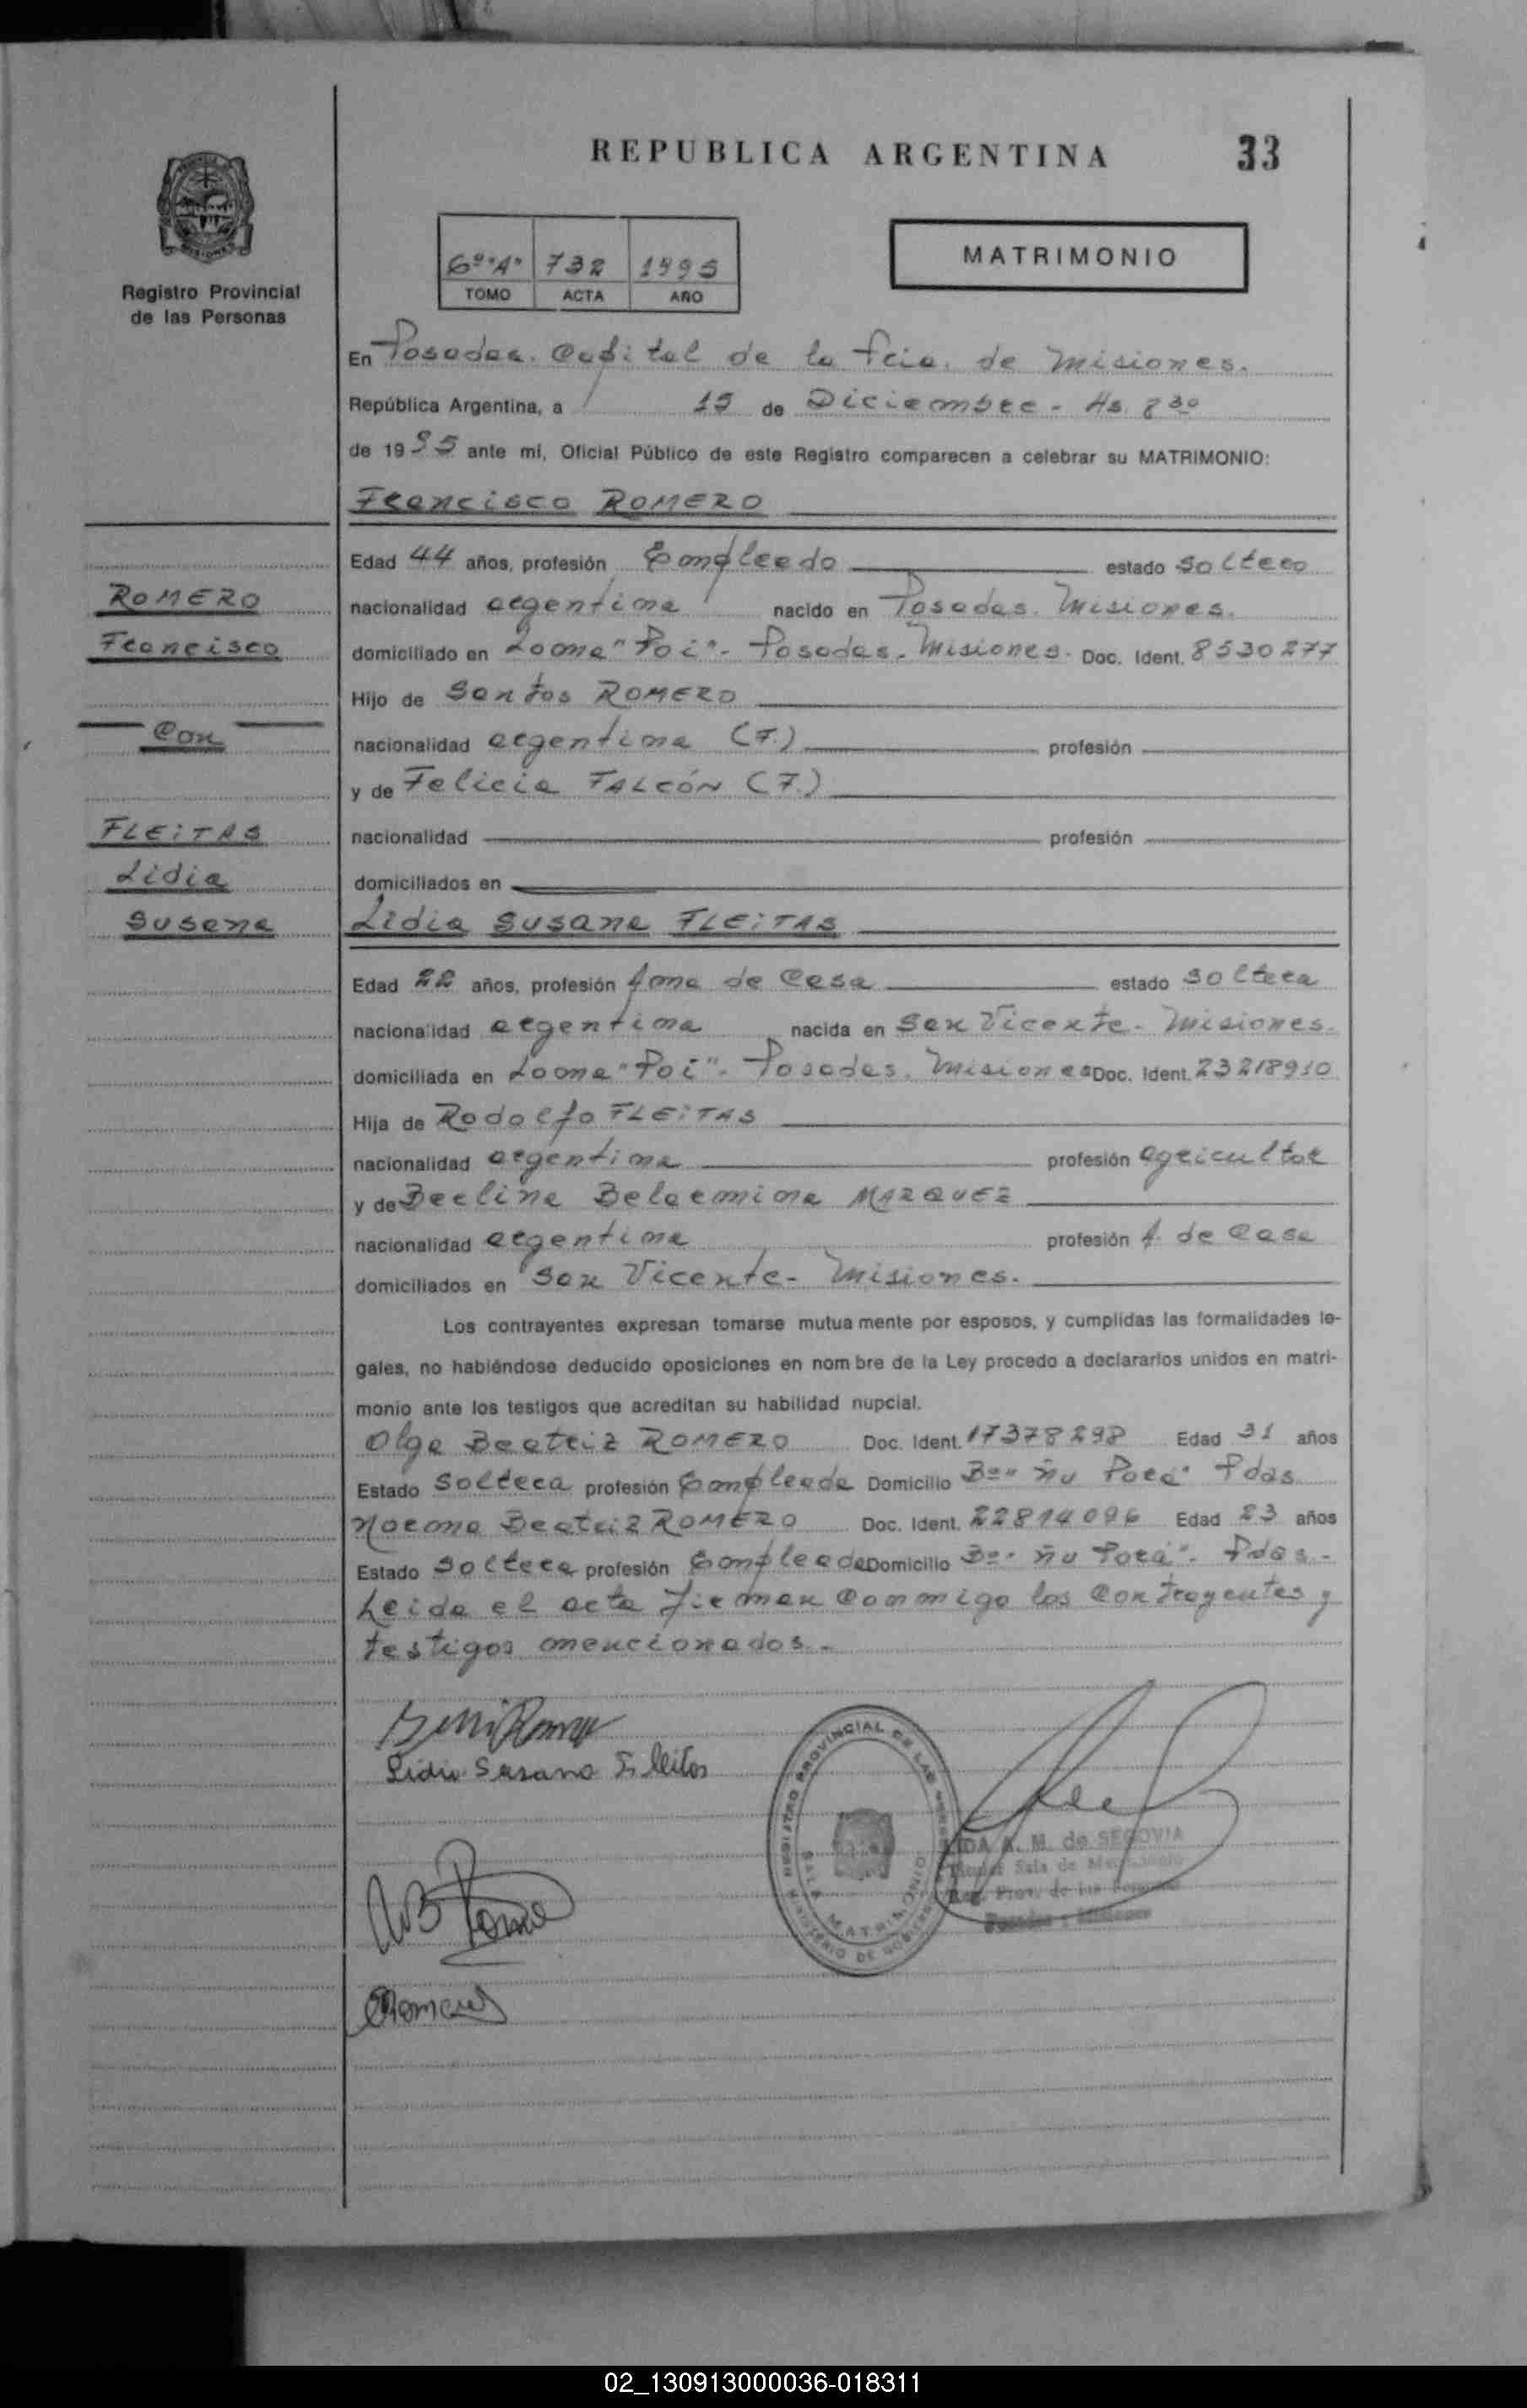 REPUBLICA ARGENTINA 33
Registro Provincial
de las Personas
6º "A" 732 1995
TOMO ACTA AÑO
MATRIMONIO
En Posadas. Capital de la Pcia. de Misiones.
República Argentina, a 15 de Diciembre - Hs. 8 30
de 1995 ante mí, Oficial Público de este Registro comparecen a celebrar su MATRIMONIO:
Francisco ROMERO
Edad 44 años, profesión Empleado estado Soltero
nacionalidad argentina nacido en Posadas. Misiones.
domiciliado en Loma "Poi" - Posadas. Misiones. Doc. Ident. 8530277
Hijo de Santos ROMERO
nacionalidad argentina (F.) profesión
y de Felicia FALCÓN (F.)
nacionalidad profesión
domiciliados en
ROMERO
Francisco
Con
FLEiTAS
Lidia
Susana
Lidia Susana FLEiTAS
Edad 22 años, profesión Ama de Casa estado Soltera
nacionalidad argentina nacida en San Vicente - Misiones.
domiciliada en Loma "Poi" - Posadas. Misiones Doc. Ident. 23218910
Hija de Rodolfo FLEiTAS
nacionalidad argentina profesión agricultor
y de Belarmina MARQUEZ
nacionalidad argentina profesión A. de Casa
domiciliados en San Vicente - Misiones.
Los contrayentes expresan tomarse mutua mente por esposos, y cumplidas las formalidades le-
gales, no habiéndose deducido oposiciones en nom bre de la Ley procedo a declararlos unidos en matri-
monio ante los testigos que acreditan su habilidad nupcial.
Olga Beatriz ROMERO Doc. Ident. 17378298 Edad 31 años
Estado Soltera profesión Empleada Domicilio Bº "Ñu Porá" Pdas.
Norma Beatriz ROMERO Doc. Ident. 22814096 Edad 23 años
Estado Soltera profesión Empleada Domicilio Bº "Ñu Porá" - Pdas -
Leida el acta firman conmigo los contrayentes y
testigos mencionados. -
Lidia Susana Fleitas
REGISTRO PROVINCIAL DE LAS
SALA MATRIMONIO
MINISTERIO DE GOBIERNO
A. M. de SEGOVIA
Sala de
Reg. Prov. de las
02_130913000036-018311